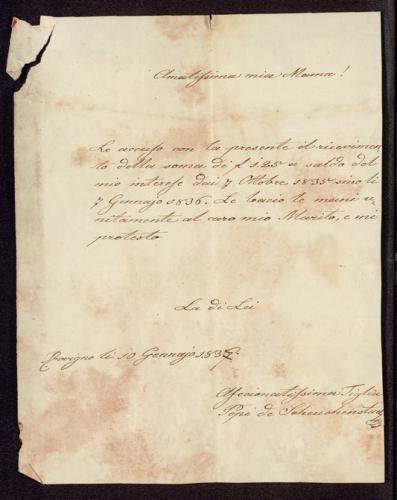 Amatissima mia Mama!
Le accuso con la presente il ricevimen
to della soma di f 125 a saldo del
mio interese dai 7 Ottobre 1835 sino li
7 Gennajo 1836. Le bacio le mani u-
nitamente al caro mio Marito, e mi
protesto
La di Lei
Rovigno li 10 Gennajo 183
Afecionatissima Figlia
Pepi de